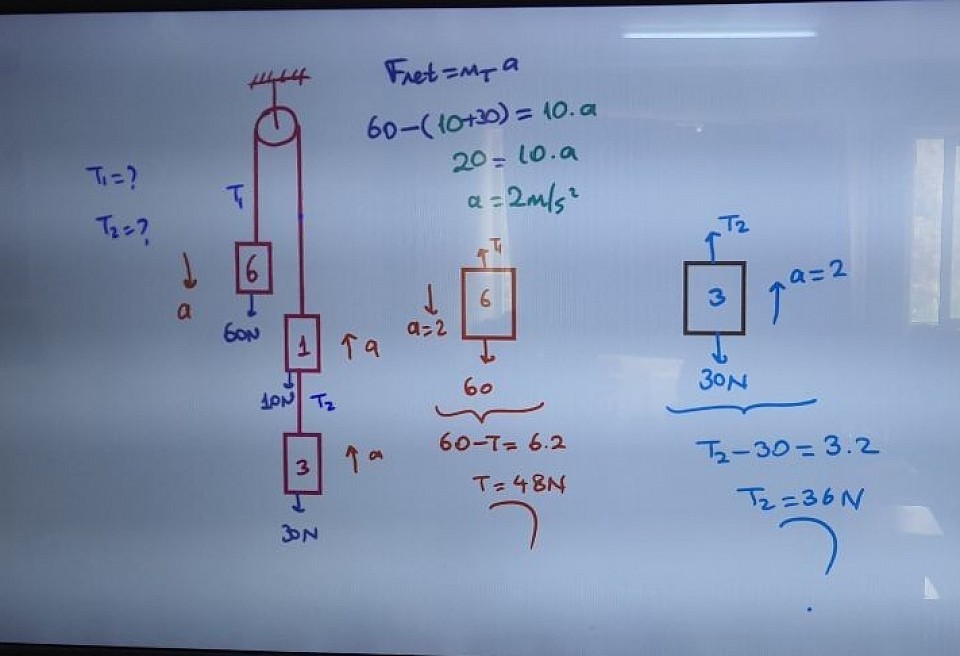 Fnet = mT a
60-(10+30) = 10.a
20 = 10.a
a = 2m/s²
T1 = ?
T2 = ?
T1
6
a
60N
1
a
10N
T2
3
a
30N
T1
6
a=2
60
60-T = 6.2
T = 48N
T2
3
a=2
30N
T2-30 = 3.2
T2 = 36N